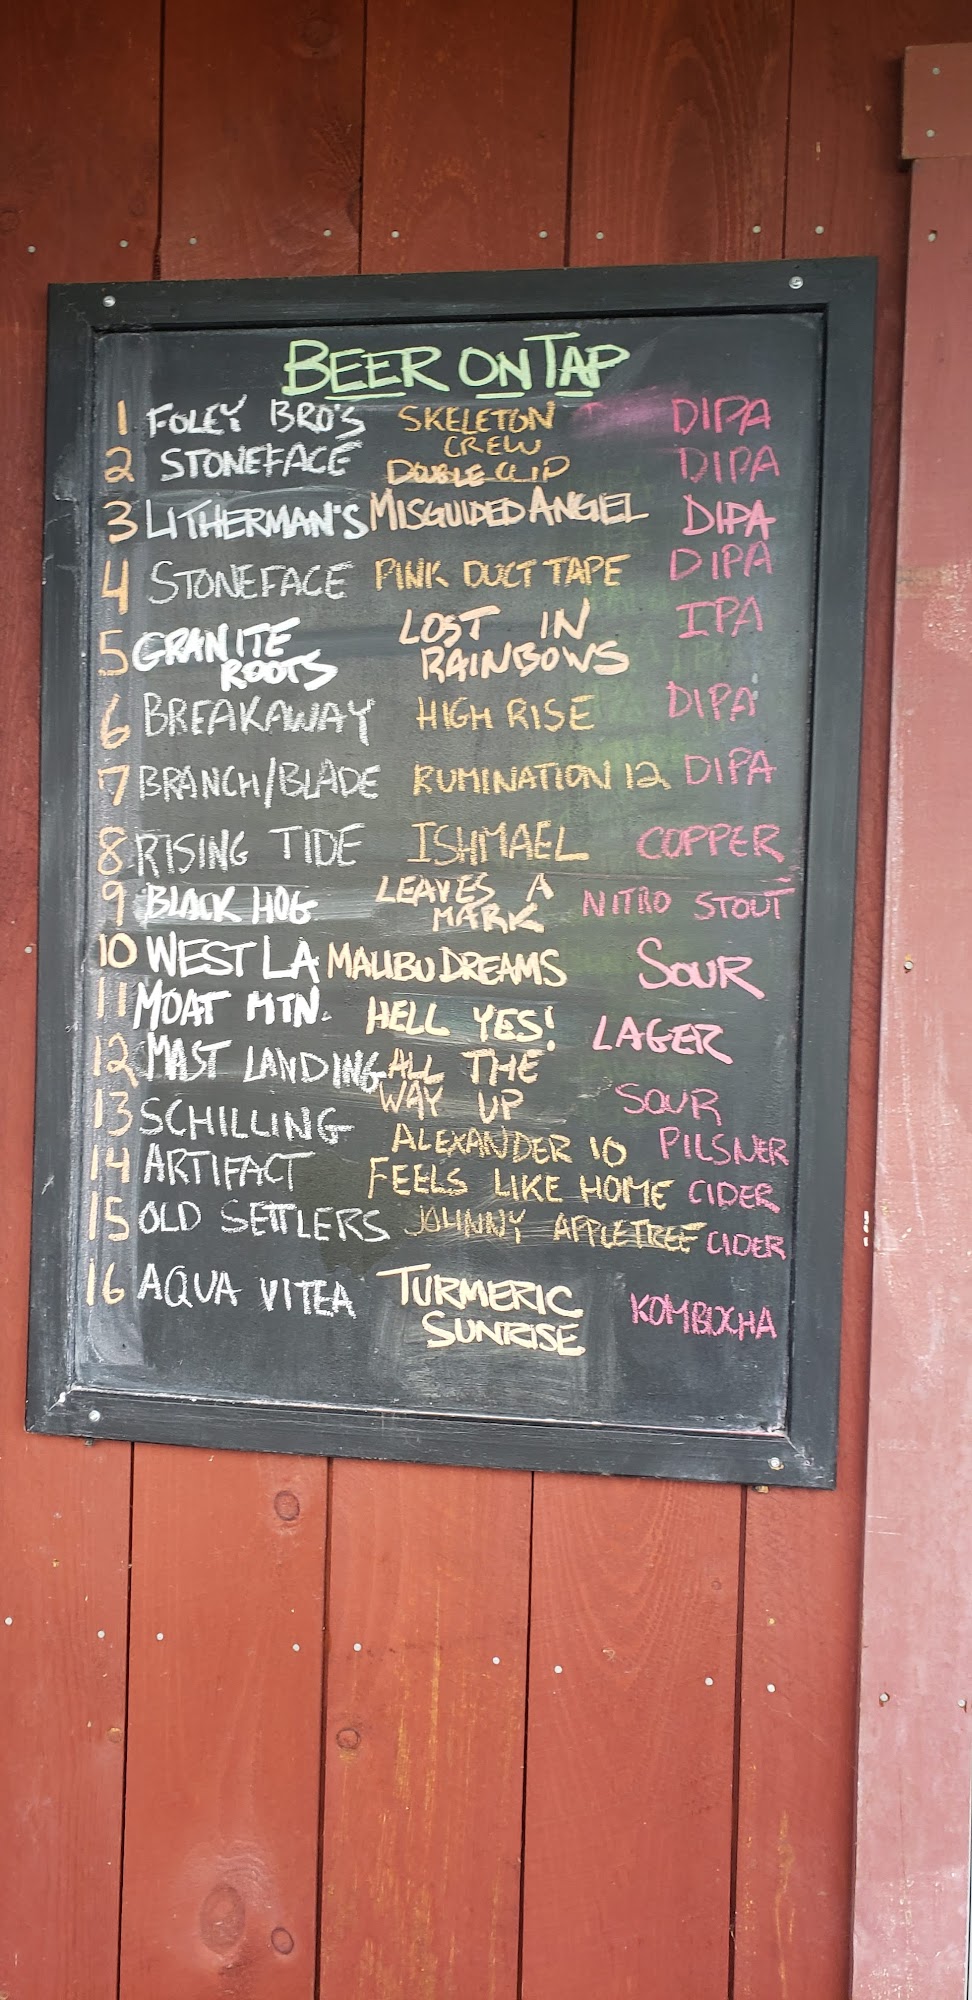 BEER ON TAP
1 FOLEY BRO'S SKELETON CREW DIPA
2 STONEFACE DOUBLE CLIP DIPA
3 LITHERMAN'S MISGUIDED ANGEL DIPA
4 STONEFACE PINK DUCT TAPE DIPA
5 GRANITE ROOTS LOST IN RAINBOWS IPA
6 BREAKAWAY HIGH RISE DIPA
7 BRANCH/BLADE RUMINATION 12 DIPA
8 RISING TIDE ISHMAEL COPPER
9 BLACK HOG LEAVES A MARK NITRO STOUT
10 WEST LA MALIBU DREAMS SOUR
11 MOAT MTN. HELL YES! LAGER
12 MAST LANDING ALL THE WAY UP SOUR
13 SCHILLING ALEXANDER 10 PILSNER
14 ARTIFACT FEELS LIKE HOME CIDER
15 OLD SETTLERS JOHNNY APPLETREE CIDER
16 AQUA VITEA TURMERIC SUNRISE KOMBUCHA